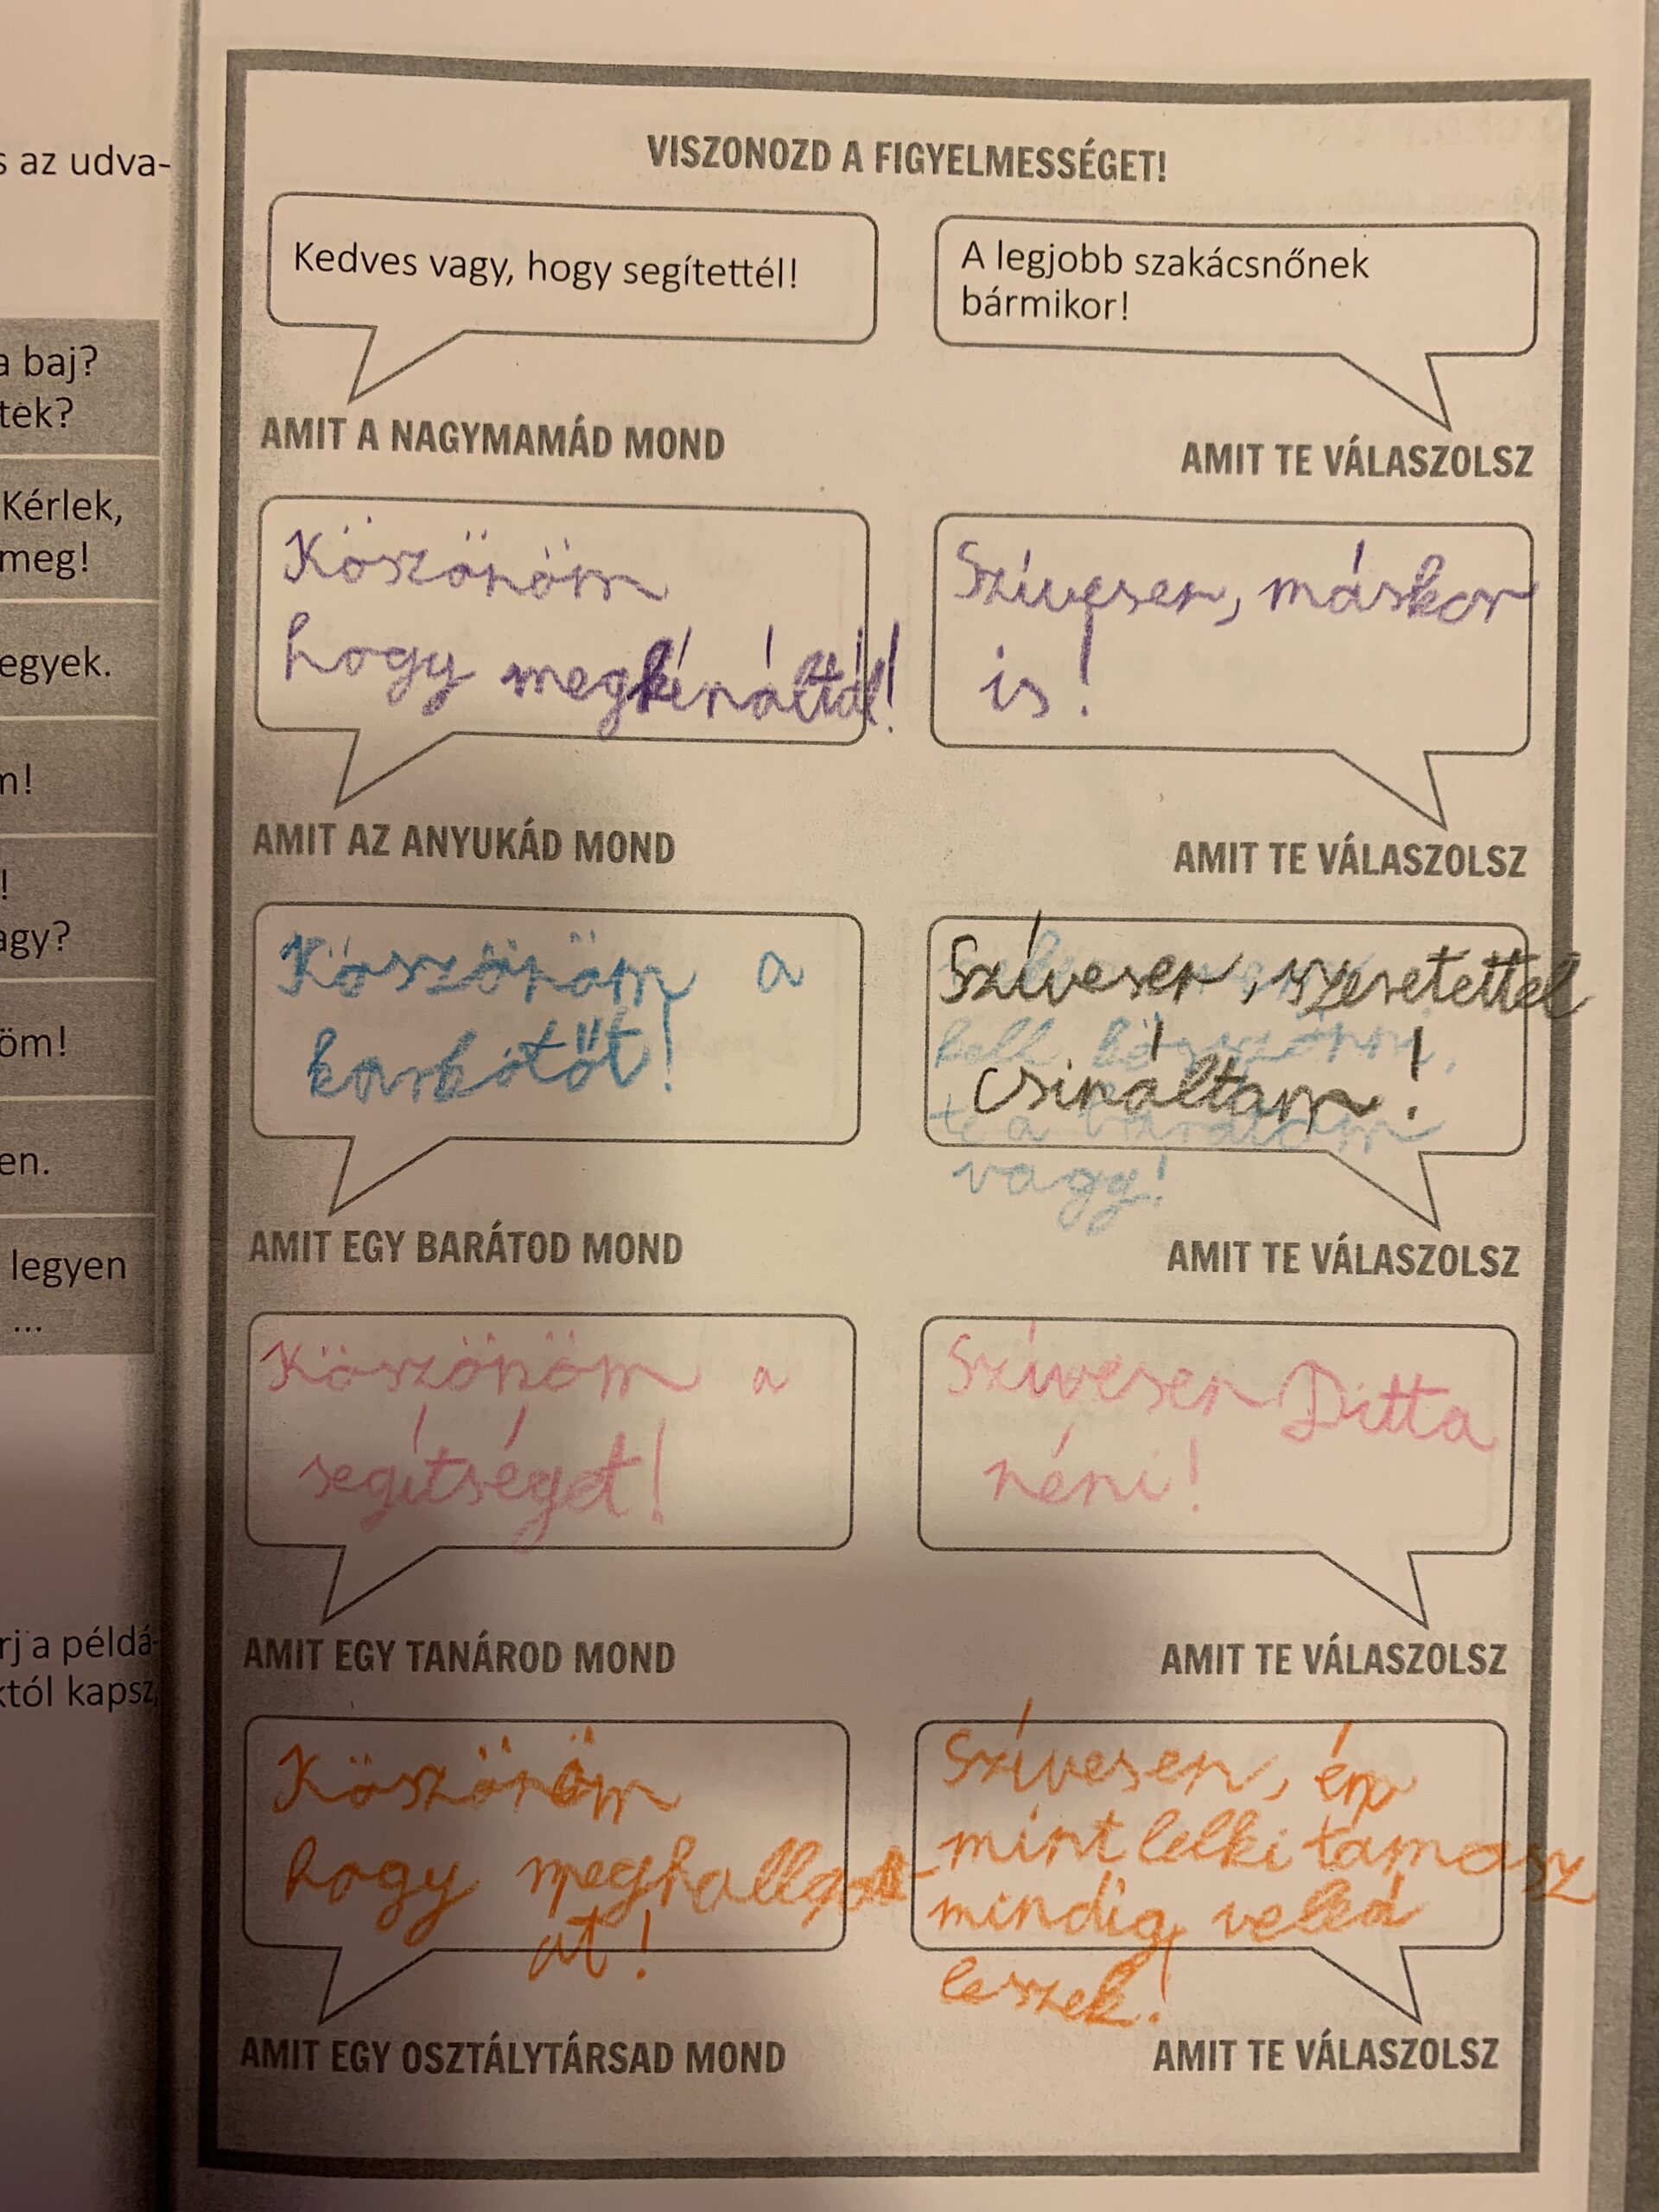 s az udva-
a baj?
tek?
Kérlek,
meg!
egyek.
m!
!
agy?
öm!
en.
legyen
...
rj a példá-
któl kapsz,
VISZONOZD A FIGYELMESSÉGET!
Kedves vagy, hogy segítettél!
A legjobb szakácsnőnek
bármikor!
AMIT A NAGYMAMÁD MOND
AMIT TE VÁLASZOLSZ
Köszönöm
hogy megkínáltál!
Szívesen, máskor
is!
AMIT AZ ANYUKÁD MOND
AMIT TE VÁLASZOLSZ
Köszönöm a
karkötőt!
Szívesen, szeretettel
csináltam!
kell köszönni,
te a barátom
vagy!
AMIT EGY BARÁTOD MOND
AMIT TE VÁLASZOLSZ
Köszönöm a
segítséget!
Szívesen Ditta
néni!
AMIT EGY TANÁROD MOND
AMIT TE VÁLASZOLSZ
Köszönöm
hogy meghallgat-
at!
Szívesen, én
mint lelki támasz
mindig veled
leszek!
AMIT EGY OSZTÁLYTÁRSAD MOND
AMIT TE VÁLASZOLSZ